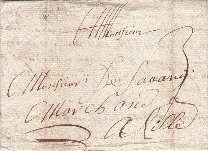 Monsieur
Monsieur
Marchand
A Lille